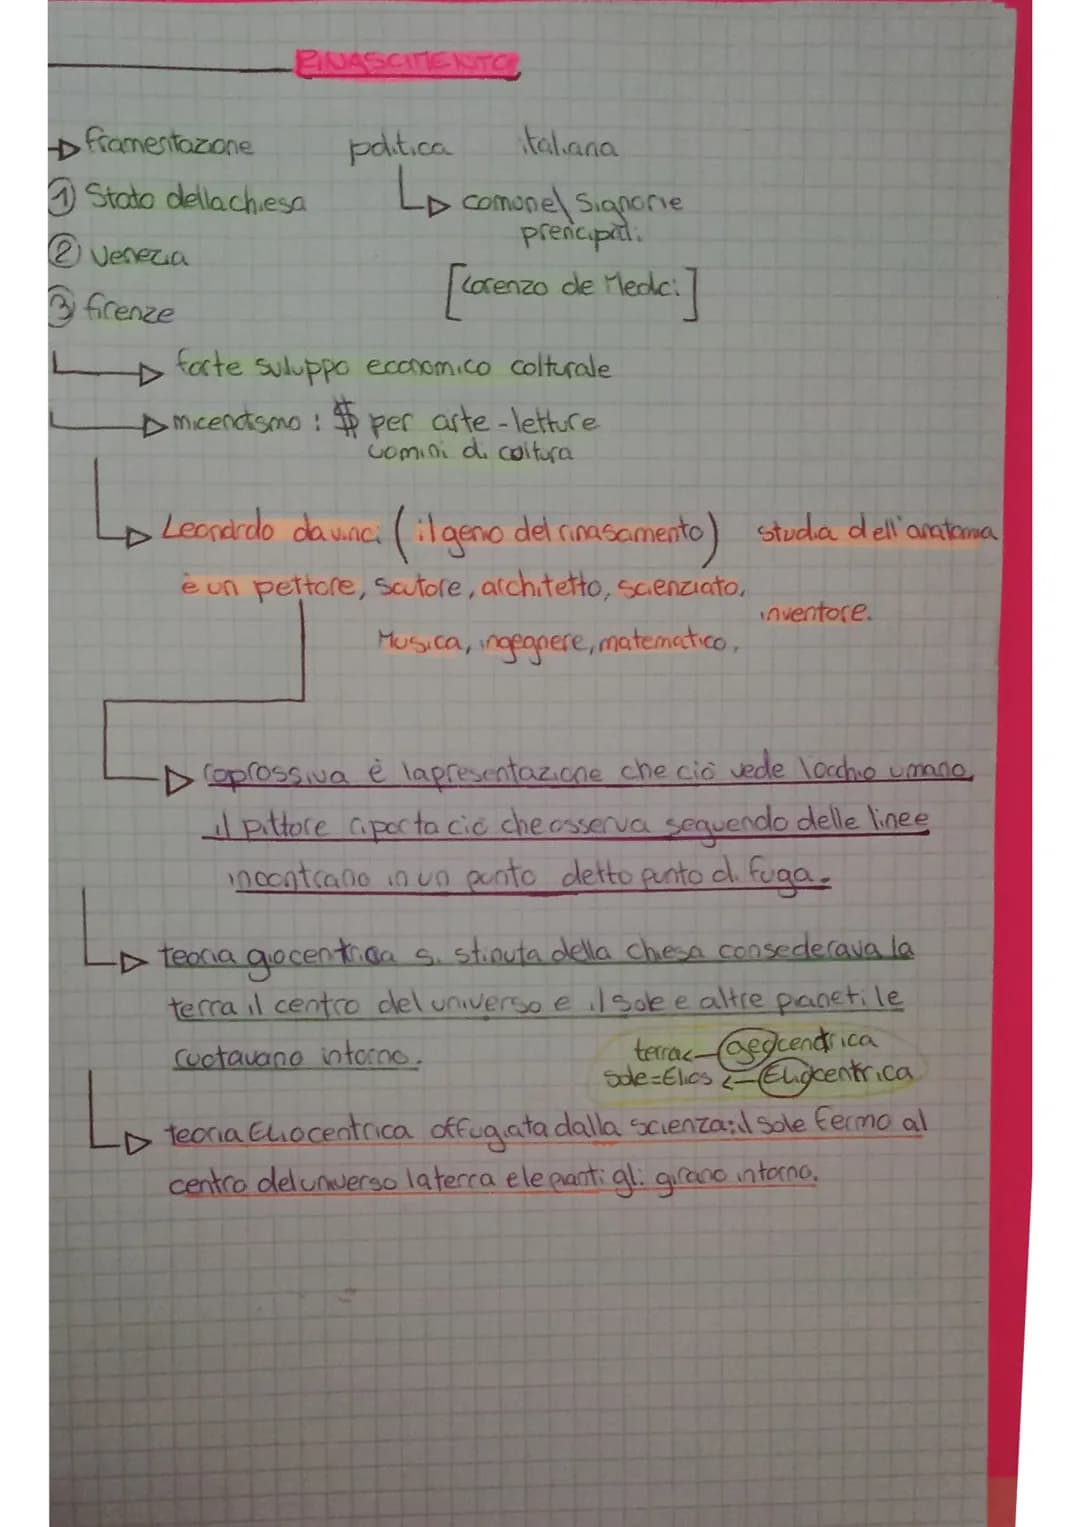 RINASCIMENTO
framentazione politica italiana
① Stato della chiesa
comune\ Signorie
prencipati
② Venezia
[Lorenzo de Medci]
③ firenze
forte suluppo economico colturale
micenatismo : $ per arte - letture
uomini di coltura
Leonardo da vinci (il genio del rinasamento) studia dell'anatomia
è un pettore, scutore, architetto, scienziato,
inventore.
Musica, ingegnere, matematico,
è lapresentazione che ciò vede locchio umano
il pittore riporta ciò che osserva seguendo delle linee
inocntrano in un punto detto punto di fuga.
teoria giocentrica della chiesa consederava la
terra il centro del universo e il sole e altre pianeti le
ruotavano intorno.
terra<-geocendrica
Sole=Elios <-Eliocentrica
teoria Eliocentrica offugiata dalla scienza:il sole fermo al
centro del universo la terra e le pianti gli girano intorno.